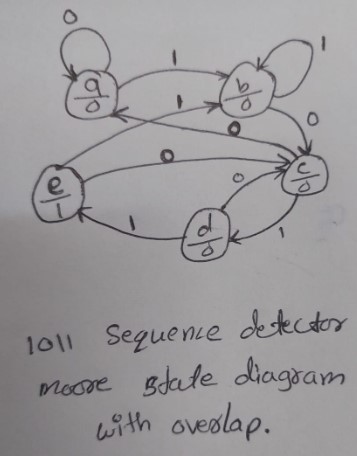 0
1
1
a/0
b/0
1
0
0
0
e/1
c/0
0
d/0
1
1
1011 Sequence detector
moore state diagram
with overlap.